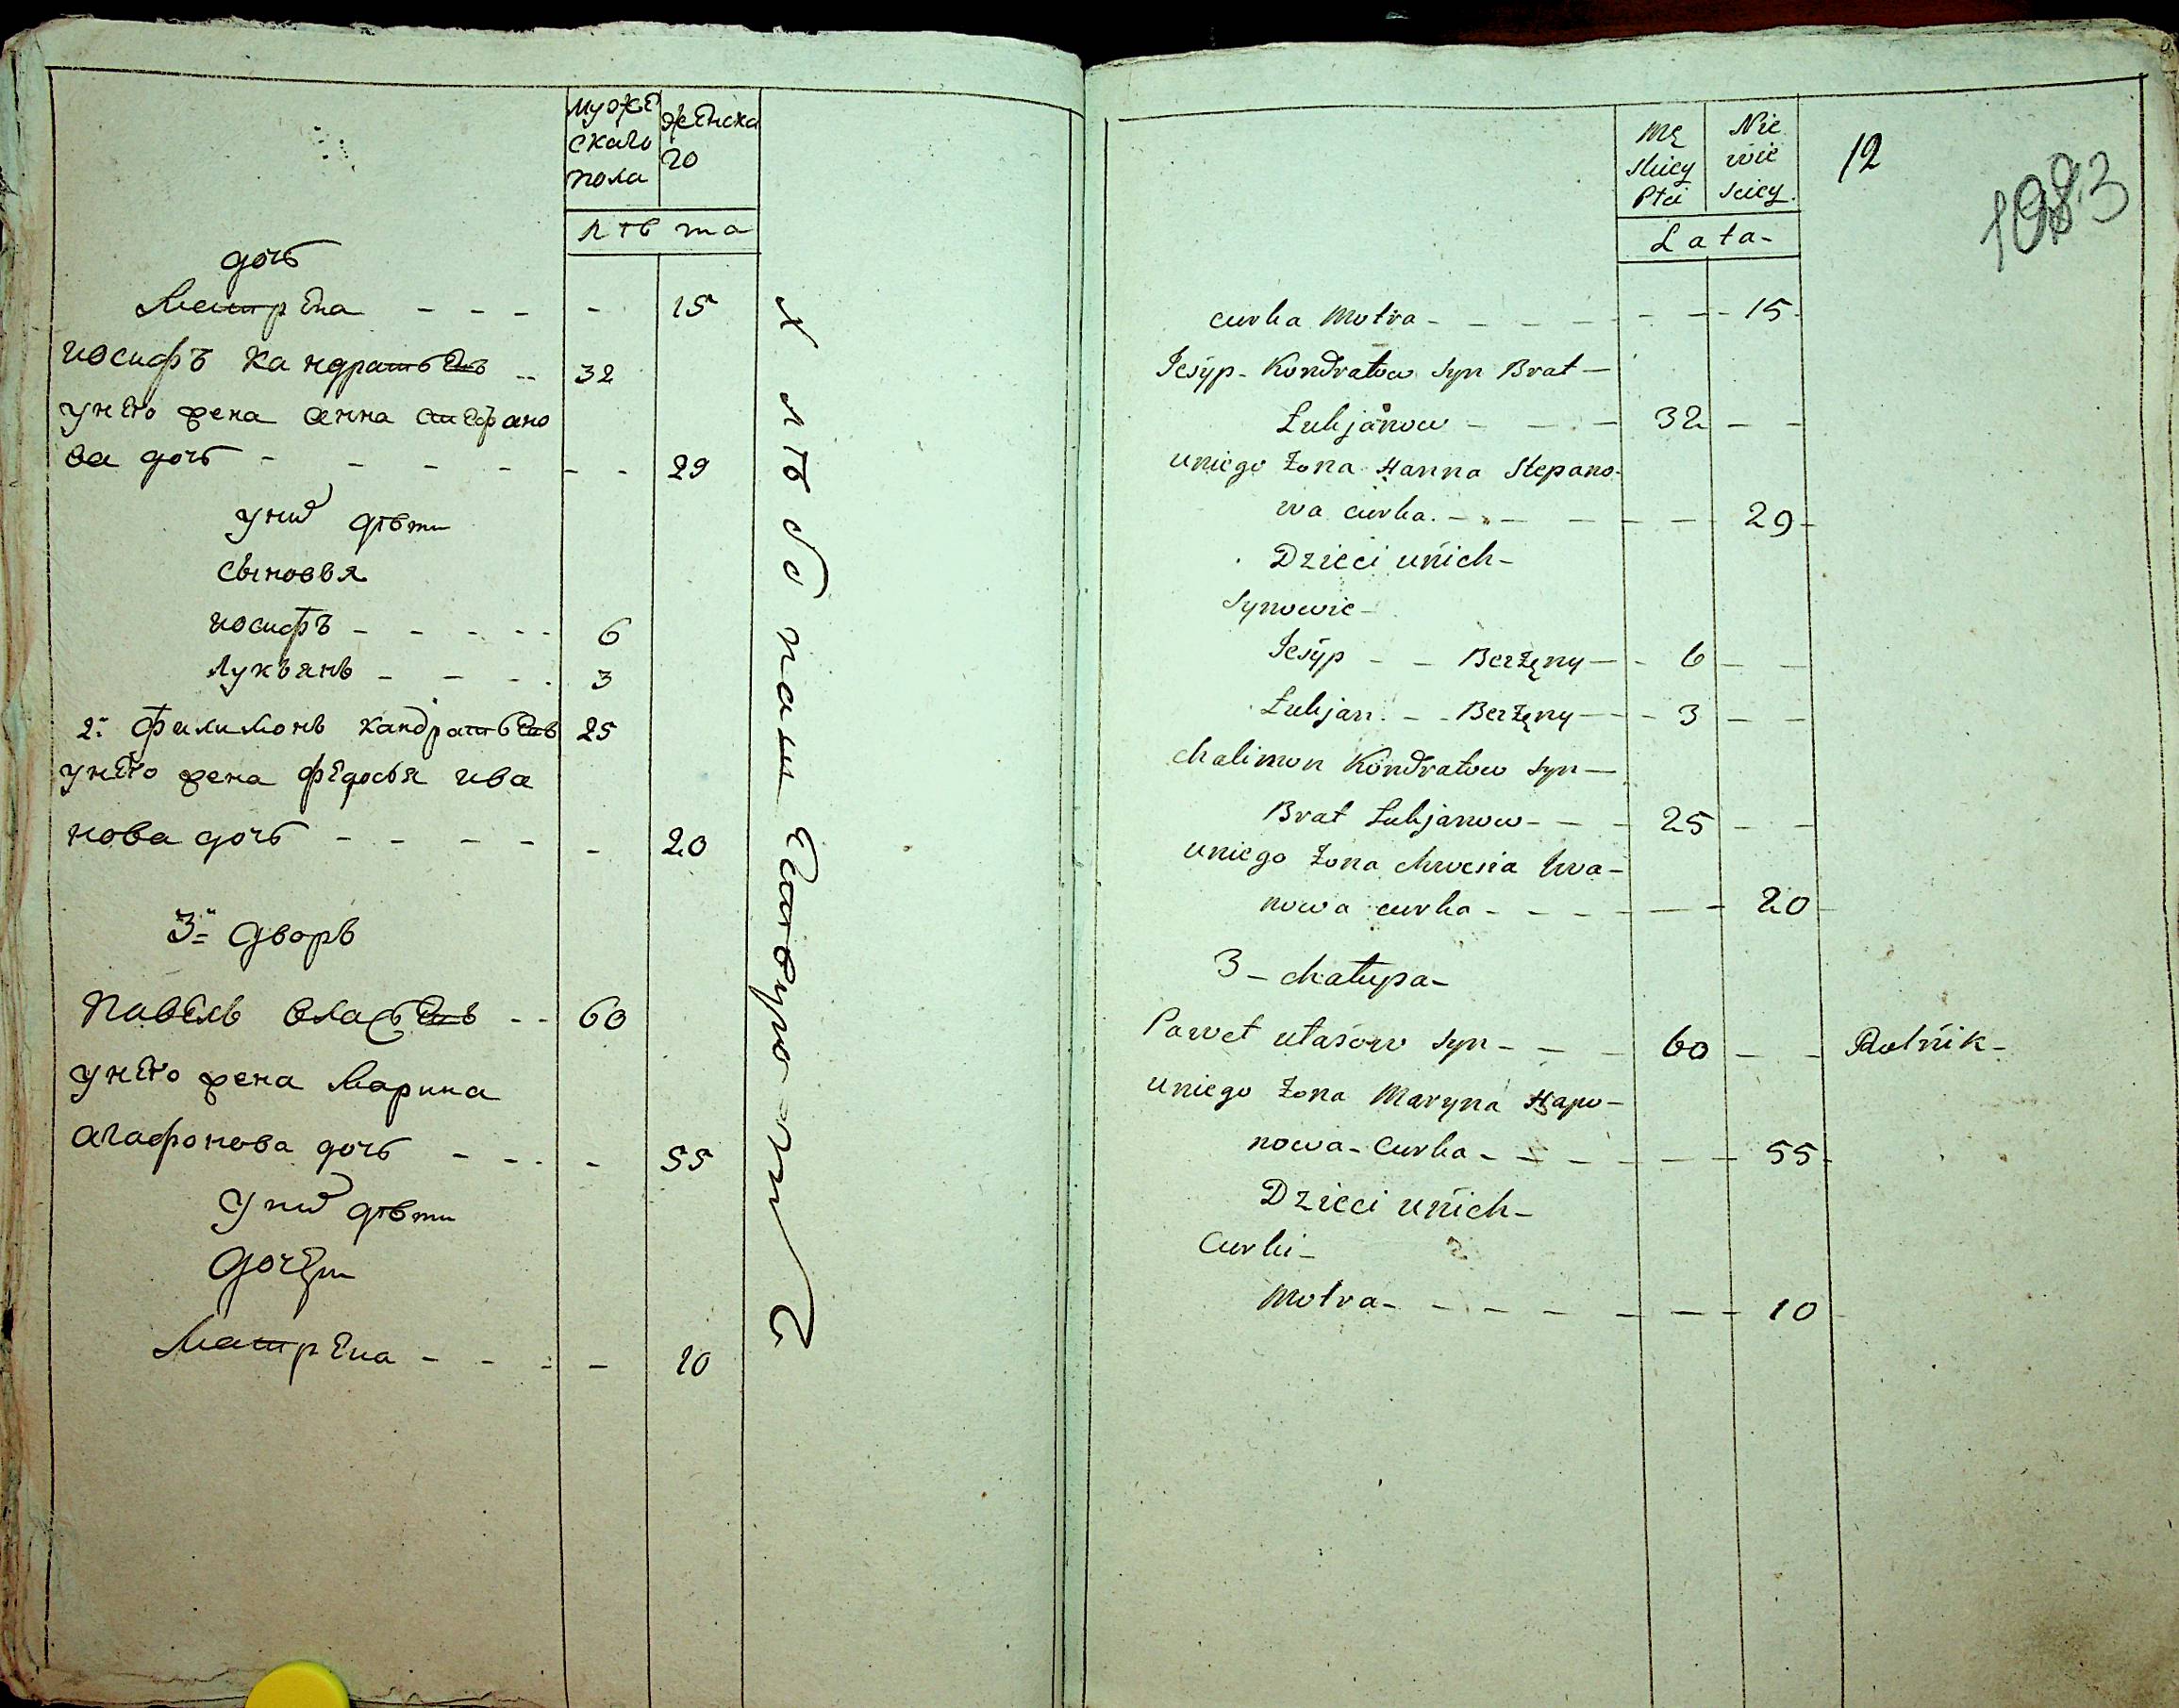 мужескаго пола
женскаго
лѣта
дочь
Матрена - - - - 15
иосифъ Кандратьевъ - - 32
унего жена анна стефано
ва дочь - - - - - - 29
уних дѣти
сыновья
иосифъ - - - - - 6
лукьянъ - - - - 3
2: филимонъ кандратьевъ 25
унего жена федосья ива
нова дочь - - - - - 20
3й дворъ
павелъ власьевъ - - 60
унего жена Марина
агафонова дочь - - - - 55
уних дѣти
дочери
Матрена - - - - 10
хлѣбопашествуютъ
Męskiey Płci
Niewieściey
Lata -
12
1083
curka Motra - - - - - - - 15 -
Jesyp - Kondratow Syn Brat -
Łukjanow - - - - 32 - -
uniego Żona Hanna Stepano-
wa curka. - - - - - - 29 -
Dzieci unich -
Synowie -
Jesyp - - Berżęny - - 6 - -
Łukjan. - - Berżęny - - 3 - -
Chalimon Kondratow Syn -
Brat Łukjanow - - - 25 - -
uniego Żona Chwesia Iwa-
nowa curka - - - - - 20 -
3 - Chałupa -
Paweł Ułasow Syn - - - 60 - - Rolnik -
uniego Żona Maryna Hapo-
nowa - Curka - - - - - - 55 -
Dzieci unich -
Curki -
Motra - - - - - - - 10 -